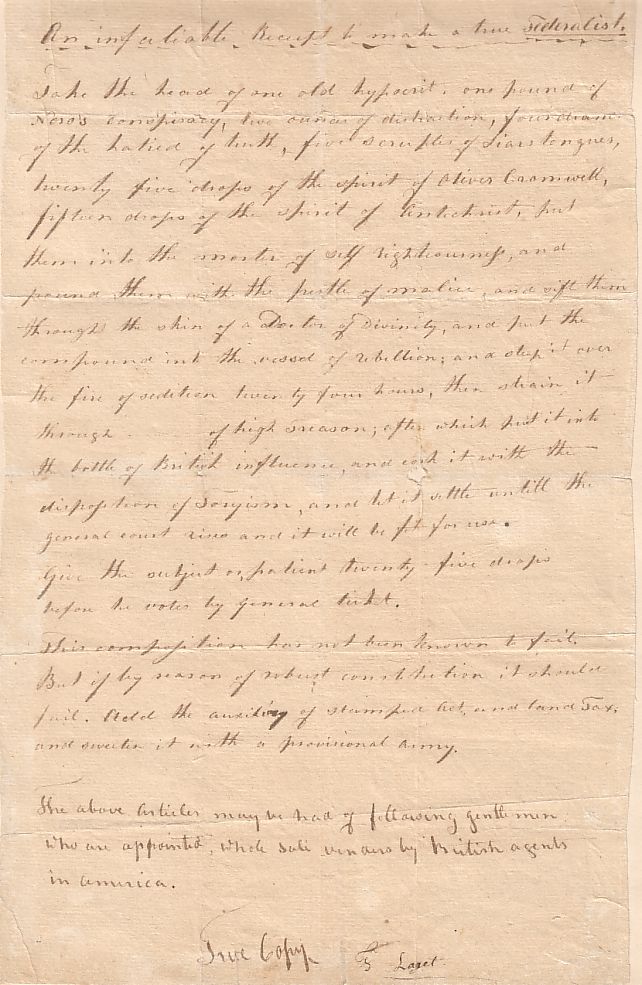 An infaliable Receipt to make a true Federalist.
Take the head of one old hypocrit, one pound of
Nero's conspiracy, two ounces of distraction, four drams
of the hatred of truth, five scruples of Liars tongues,
twenty five drops of the spirit of Oliver Cromwell,
fifteen drops of the spirit of Antichrist, put
them into the morter of self righteousness, and
pound them with the pestle of malice, and sift them
through the skin of a Doctor of Divinity, and put the
compound into the vessel of rebellion; and steep it over
the fire of sedition twenty four hours, then strain it
through of high treason; after which put it into
the bottle of British influence, and cork it with the
disposition of Toryism, and let it settle untill the
general court rises and it will be fit for use.
Give the subject or patient twenty-five drops
before he votes by general ticket.
This composition has not been known to fail.
But if by reason of robust constitution it should
fail. Add the of stamped Act, and land Tax,
and sweeten it with a provisional army.
The above Articles may be had of following gentlemen
who are appointed, whole sale venders by British agents
in america.
True Copy